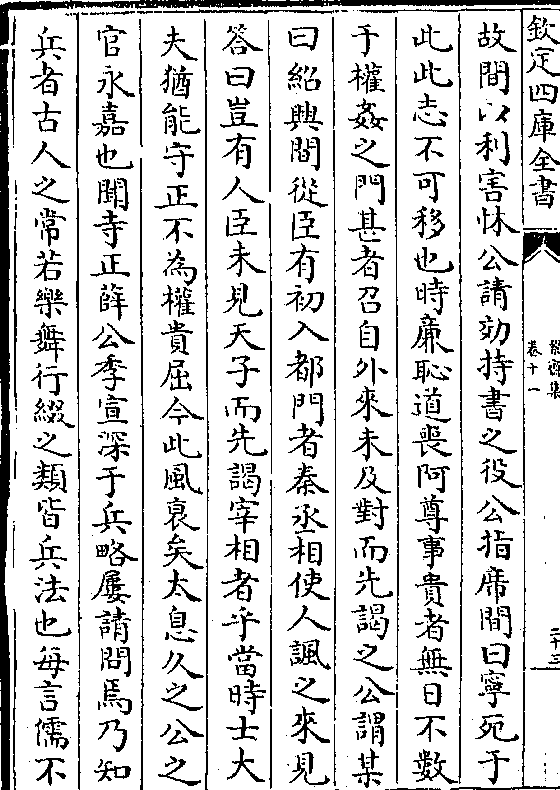 欽定四庫全書
卷十一
故間以利害怵公請効持書之役公指席間曰寧死于
此此志不可移也時廉恥道喪阿尊事貴者無日不數
于權姦之門甚者召自外來未及對而先謁之公謂某
曰紹興間從臣有初入都門者秦丞相使人諷之來見
答曰豈有人臣未見天子而先謁宰相者乎當時士大
夫猶能守正不為權貴屈今此風衰矣太息久之公之
官永嘉也聞寺正薛公季宣深于兵略屢請問焉乃知
兵者古人之常若樂舞行綴之類皆兵法也每言儒不